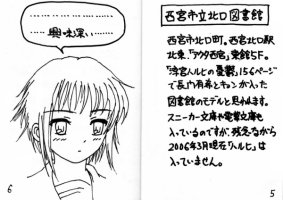 ……………
……興味深い……
西宮市立北口図書館
西宮市北口町。西宮北口駅
北東「アクタ西宮」東館5F。
「涼宮ハルヒの憂鬱」156ページ
で長門有希とキョンが入った
図書館のモデルと思われます。
スニーカー文庫や電撃文庫も
入っているのですが、残念ながら
2006年3月現在「ハルヒ」は
入っていません。
6
5